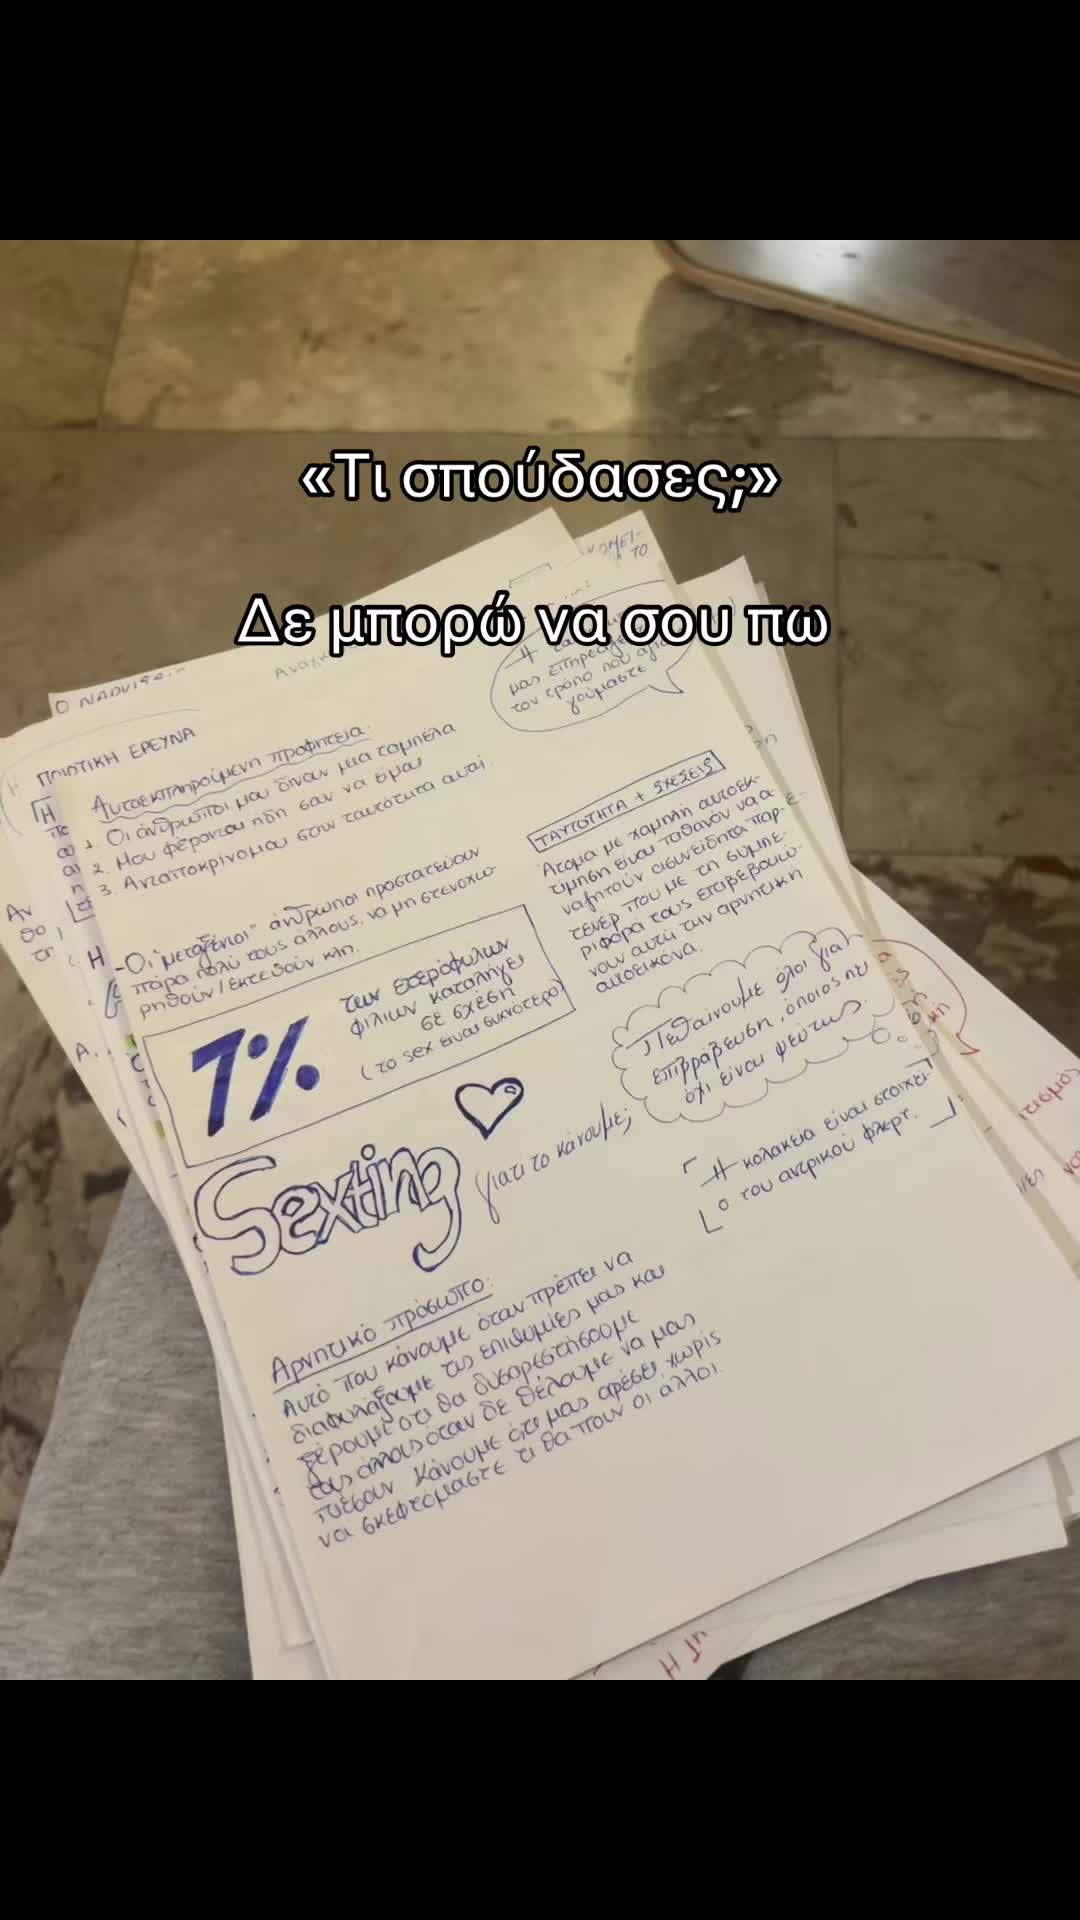 «Τι σπούδασες;»
Δε μπορώ να σου πω
ΠΟΙΟΤΙΚΗ ΕΡΕΥΝΑ
μας επηρεάζει
τον τρόπο που
γούμαστε
Αυτοεκπληρούμενη προφητεία:
1. Οι άνθρωποι μου δίνουν μια ταμπέλα
2. Μου φέρονται ήδη σαν να είμαι
3. Ανταποκρίνομαι στην ταυτότητα αυτή.
- Οι "μεταξένιοι" άνθρωποι προστατεύουν
πάρα πολύ τους άλλους, να μη στενοχω-
ρηθούν/εκτεθούν κλπ.
ΤΑΥΤΟΤΗΤΑ + ΣΧΕΣΕΙΣ
Άτομα με χαμηλή αυτοεκ-
τίμηση είναι πιθανόν να α-
ναζητούν ασυνείδητα παρ-
τενέρ που με τη συμπε-
ριφορά τους επιβεβαιώ-
νουν αυτή την αρνητική
αυτοεικόνα.
7%
των ετερόφυλων
φιλιών καταλήγει
σε σχέση
(το sex είναι συχνότερο)
Πεθαίνουμε όλοι για
επιβράβευση, όποιος πει
όχι είναι ψεύτης.
Sexting
γιατί το κάνουμε;
Η κολακεία είναι στοιχεί-
ο του αντρικού φλερτ.
Αρνητικό πρόσωπο:
Αυτό που κάνουμε όταν πρέπει να
διαφυλάξουμε τις επιθυμίες μας και
ξέρουμε ότι θα δυσαρεστήσουμε
τους άλλους όταν δε θέλουμε να μας
πιέσουν. Κάνουμε ό,τι μας αρέσει χωρίς
να σκεφτόμαστε τι θα πουν οι άλλοι.